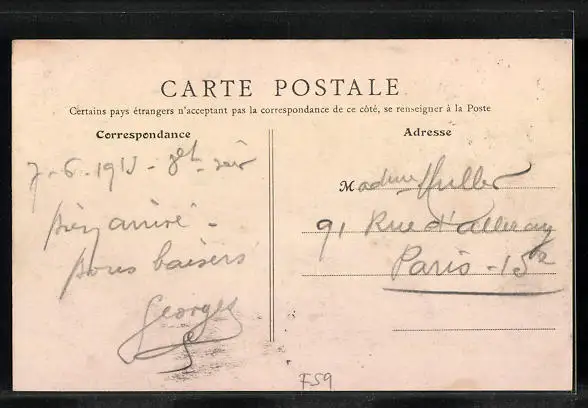 CARTE POSTALE
Certains pays étrangers n'acceptant pas la correspondance de ce côté, se renseigner à la Poste
Correspondance
7-6-1913 - 8ht soir
bien arrivé -
bons baisers
Georges
Adresse
Madame Muller
91 Rue d'alleray
Paris - 15e
F59